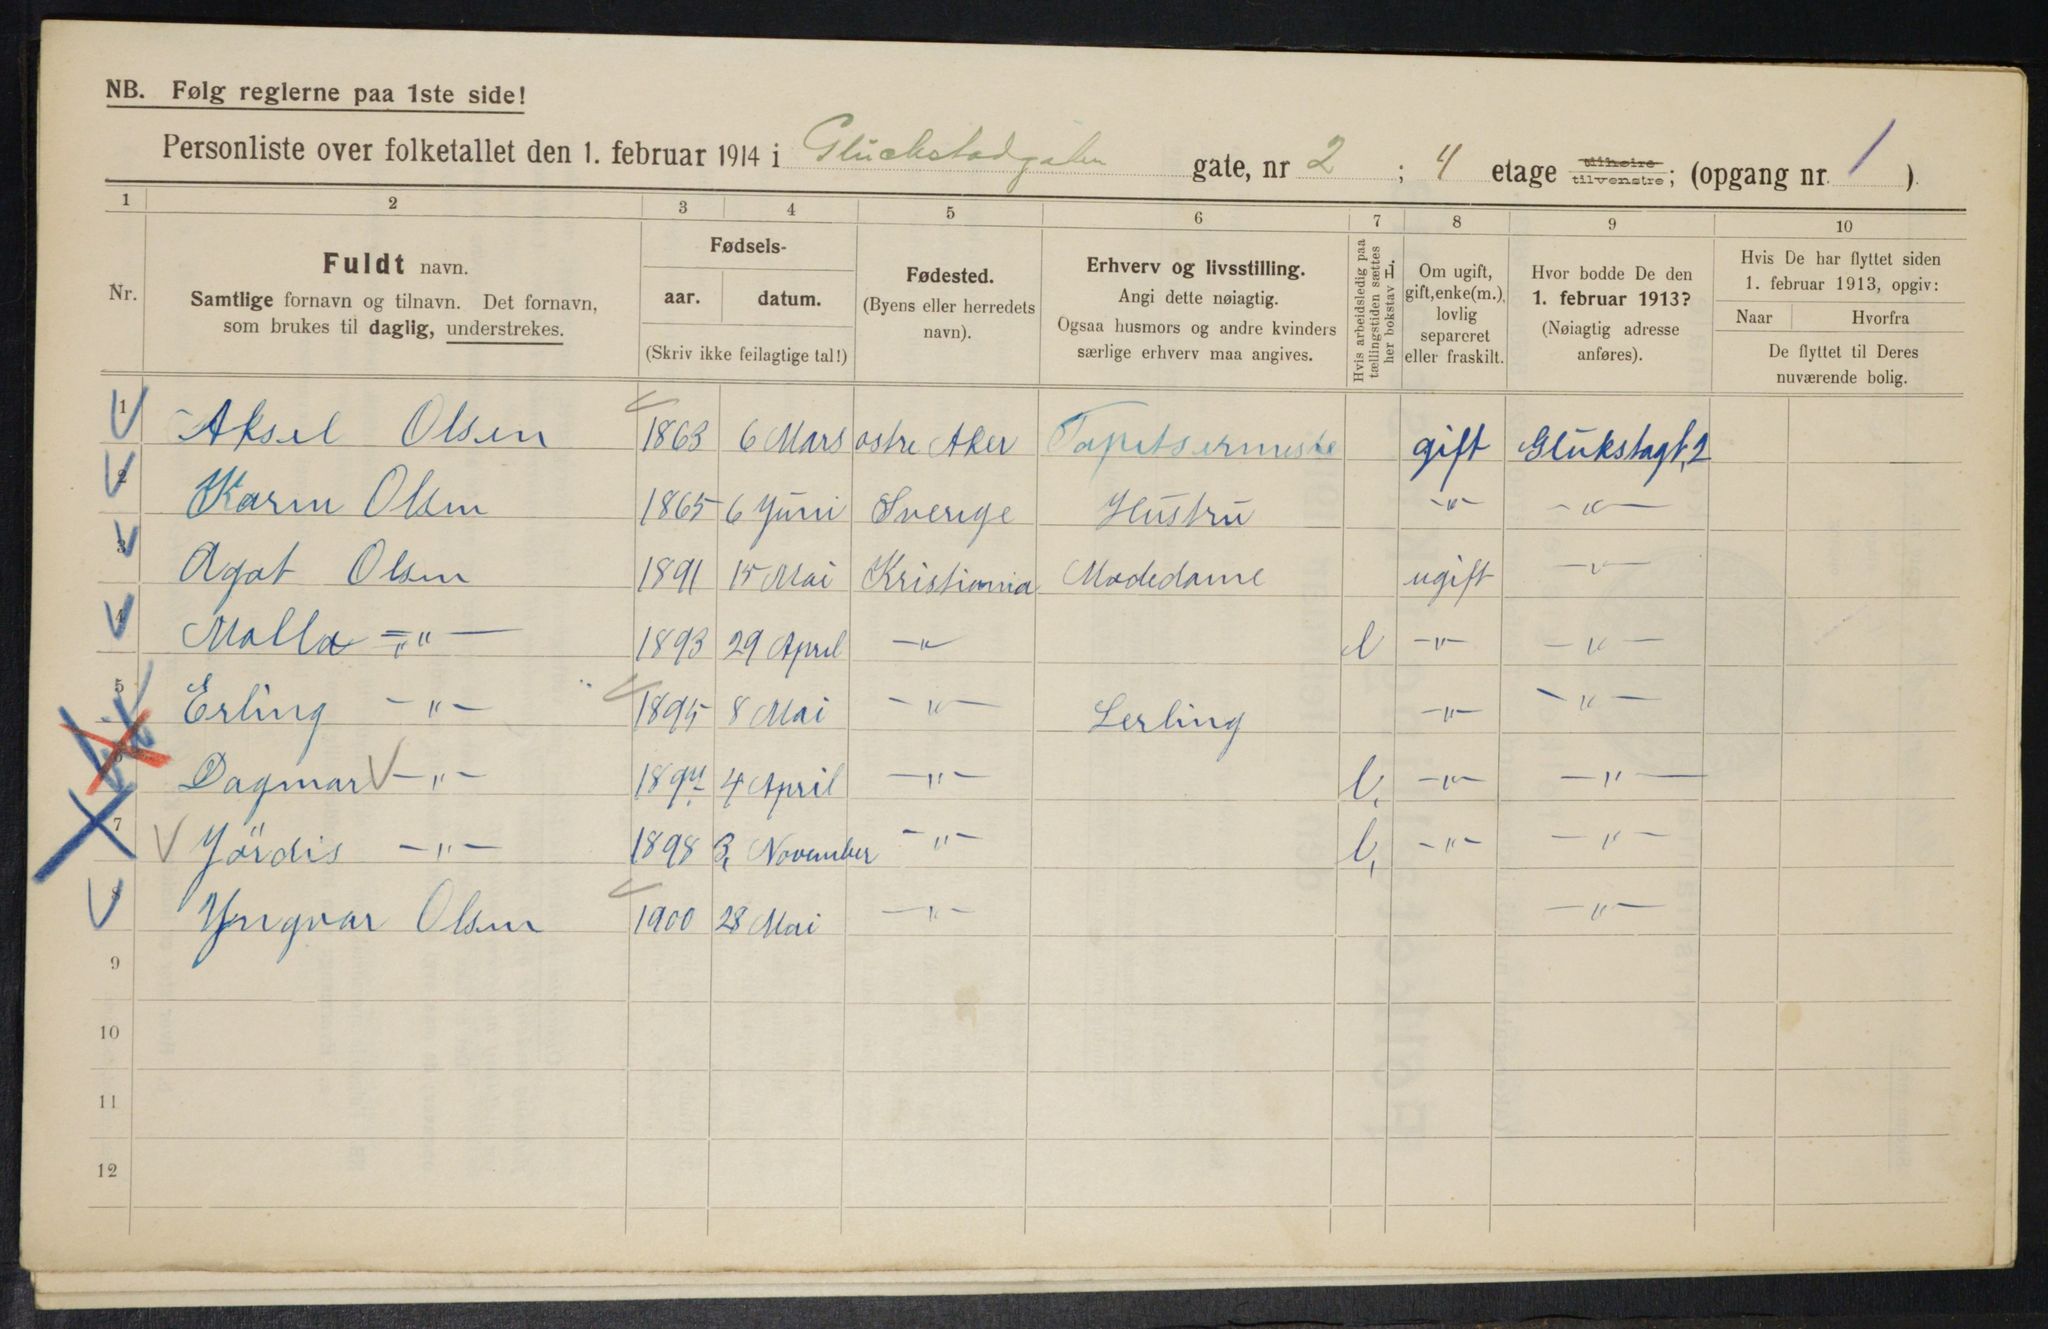 NB. Følg reglerne paa 1ste side!
Personliste over folketallet den 1. februar 1914 i Glückstadgaten gate, nr 2 ; 4 etage tilhøire tilvenstre; (opgang nr. 1 ).
1 2 3 4 5 6 7 8 9 10
Nr.
Fuldt navn.
Samtlige fornavn og tilnavn. Det fornavn,
som brukes til daglig, understrekes.
Fødsels-
aar. datum.
(Skriv ikke feilagtige tal!)
Fødested.
(Byens eller herredets
navn).
Erhverv og livsstilling.
Angi dette nøiagtig.
Ogsaa husmors og andre kvinders
særlige erhverv maa angives.
Hvis arbeidsledig paa
tællingstiden sættes
her bokstav L.
Om ugift,
gift, enke(m.),
lovlig
separeret
eller fraskilt.
Hvor bodde De den
1. februar 1913?
(Nøiagtig adresse
anføres).
Hvis De har flyttet siden
1. februar 1913, opgiv:
Naar Hvorfra
De flyttet til Deres
nuværende bolig.
1 Aksel Olsen 1863 6 Mars ostre Aker Tapetsermeste gift Glükstagt, 2
2 Karen Olsen 1865 6 Juni Sverige Hüstrü –„– –„–
3 Agot Olsen 1891 15 Mai Kristiania Modedame ugift –„–
4 Molla =„– 1893 29 April –„– l –„– –„–
5 Erling –„– 1895 8 Mai –„– Lerling –„– –„–
6 Dagmar –„– 1894 4 April –„– l, –„– –„–
7 Yördis –„– 1898 3, November –„– l, –„– –„–
8 Yngvar Olsen 1900 28 Mai –„– –„–
9
10
11
12